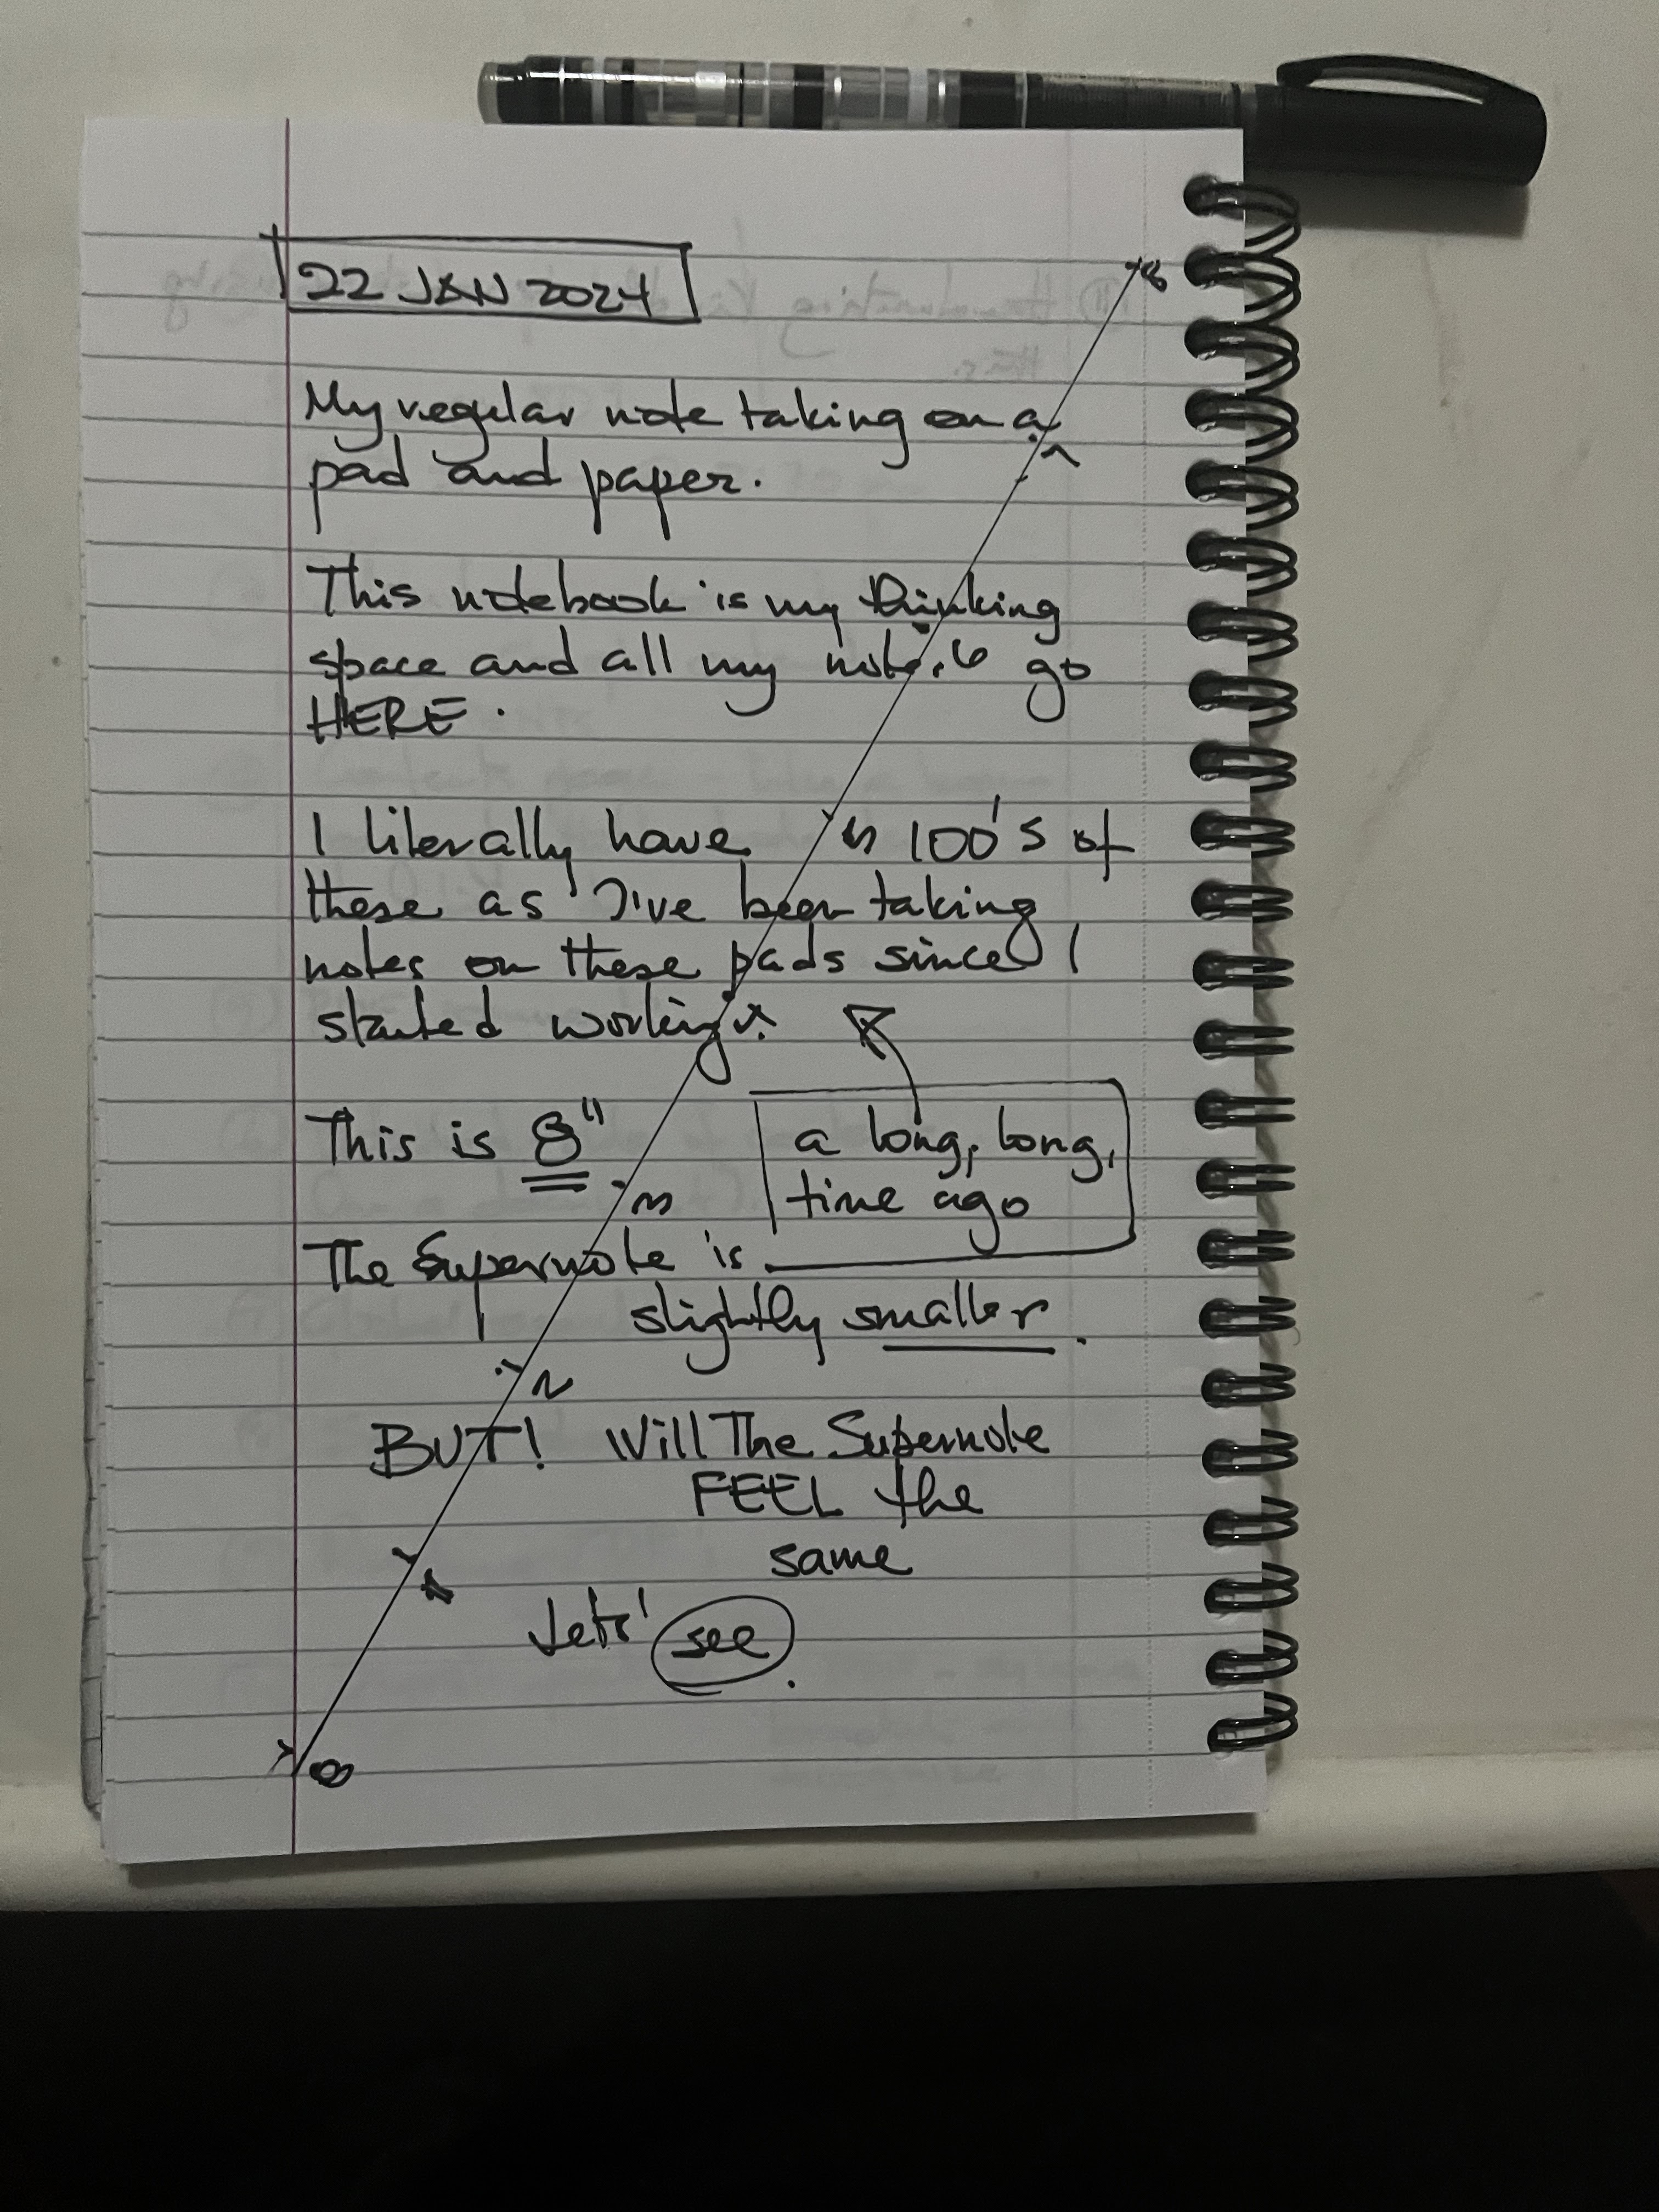 22 JAN 2024
My regular note taking on a
pad and paper.
This notebook is my thinking
space and all my note. go
HERE.
I literally have 100's of
these as I've been taking
notes on these pads since I
started working.
a long, long,
time ago
This is 8"
The Supernote is
slightly smaller.
BUT! Will The Supernote
FEEL the
same
Lets' see.
8
7
6
5
4
3
2
1
0